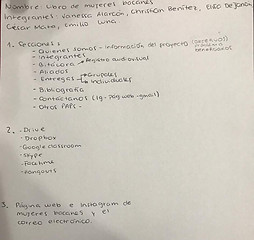 Nombre: Libro de mujeres bocanes
Integrantes: Vanessa Alarcón, Christian Benitez,
Cesar Mato, Emilio Luna.
1. Secciones:
- Quienes somos - información del proyecto
- Integrantes
- Bitácora → Registro audiovisual
- Aliados
- Entregas → Grupales
→ Individuales
- Bibliografía
- Contáctanos (ig - pag web - gmail)
- Otros PAPs -
2. - Drive
- Dropbox
- Google classroom
- Skype
- Facetime
- Hangouts
3. Página web e instagram de
mujeres bocanes y el
correo electrónico.